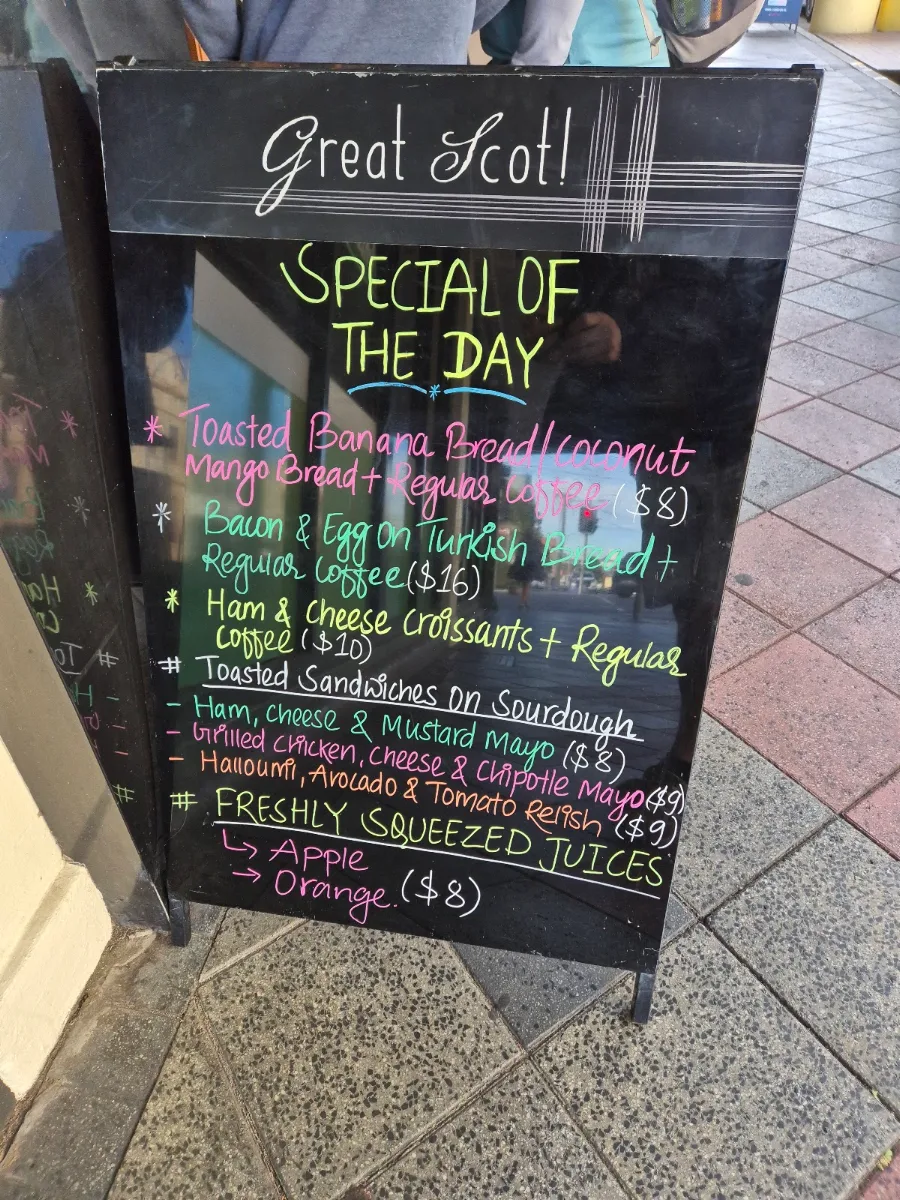 Great Scot!
SPECIAL OF
THE DAY
* Toasted Banana Bread/coconut
Mango Bread + Regular Coffee ($8)
* Bacon & Egg on Turkish Bread +
Regular Coffee ($16)
* Ham & cheese croissants + Regular
Coffee ($10)
# Toasted Sandwiches on Sourdough
- Ham, cheese & Mustard Mayo ($8)
- Grilled chicken, cheese & chipotle Mayo ($9)
- Halloumi, Avocado & Tomato Relish ($9)
# FRESHLY SQUEEZED JUICES
↳ Apple
→ Orange. ($8)